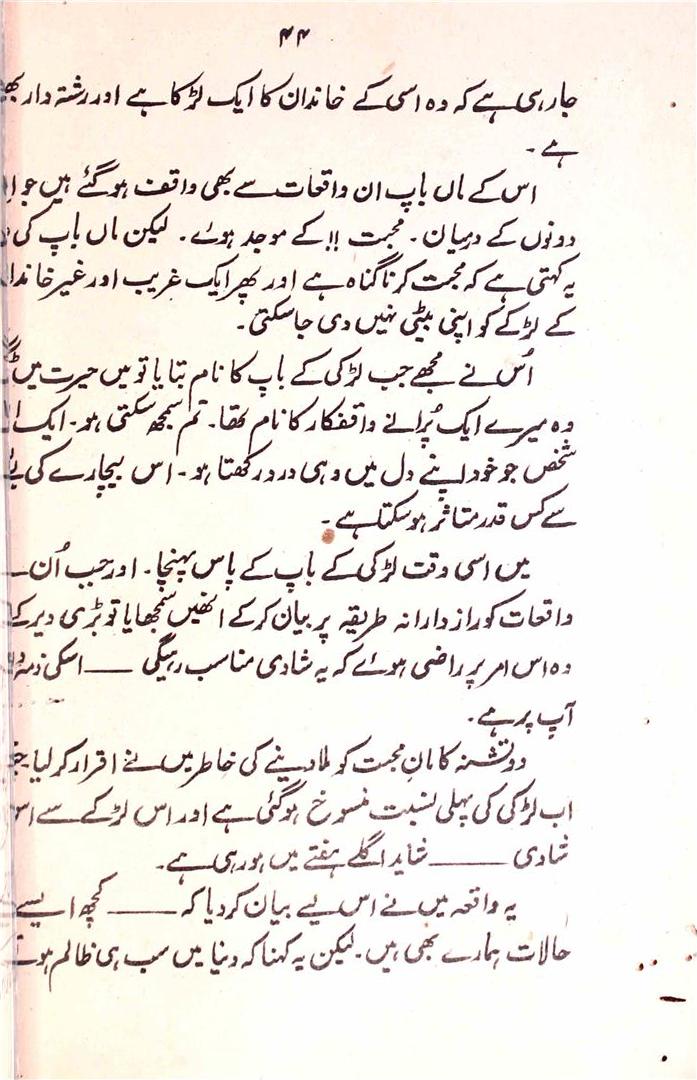 ۴۴
جارہی ہے کہ وہ اسی کے خاندان کا ایک لڑکا ہے اور رشتہ دار بھی
ہے۔
اس کے ماں باپ ان واقعات سے بھی واقف ہو گئے ہیں جو
دونوں کے درمیان۔ محبت !! کے موجد ہوئے۔ لیکن ماں باپ کی
یہ کہتی ہے کہ محبت کرنا گناہ ہے اور پھر ایک غریب اور غیر خاندان
کے لڑکے کو اپنی بیٹی نہیں دی جا سکتی۔
اُس نے مجھے جب لڑکی کے باپ کا نام بتایا تو میں حیرت میں
وہ میرے ایک پُرانے واقفکار کا نام تھا۔ تم سمجھ سکتی ہو۔ ایک
شخص جو خود اپنے دل میں وہی درد رکھتا ہو۔ اس بیچارے کی
سے کس قدر متاثر ہو سکتا ہے۔
میں اسی وقت لڑکی کے باپ کے پاس پہنچا۔ اور جب اُن
واقعات کو راز دارانہ طریقہ پر بیان کر کے انھیں سمجھایا تو بڑی دیر کے
وہ اس امر پر راضی ہوئے کہ یہ شادی مناسب رہیگی ــــ اسکی ذمہ
آپ پر ہے۔
دو تشنہ کامانِ محبت کو ملا دینے کی خاطر میں نے اقرار کر لیا
اب لڑکی کی پہلی نسبت منسوخ ہو گئی ہے اور اس لڑکے سے
شادی ــــــ شاید اگلے ہفتے میں ہو رہی ہے۔
یہ واقعہ میں نے اس لیے بیان کر دیا کہ ــــــ کچھ ایسے
حالات ہمارے بھی ہیں۔ لیکن یہ کہنا کہ دنیا میں سب ہی ظالم ہوتے